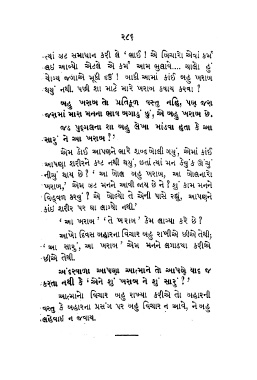 ૨૮૬
ત્યાં ઝટ સમાધાન કરી લે 'ભાઈ ! એ બિચારો એવાં કર્મ
લઈ આવ્યો એટલે એ કર્મ આમ ભુલાવે.... ચાલો હું
યોગ્ય જવાબે મૂકી દઉં ! બાકી આમાં કાંઈ બહુ ખરાબ
થયું નથી. પછી શા માટે મારે ખરાબ કરાય કરવા ?
બહુ ખરાબ તો પ્રતિકૂળ વસ્તુ નહિ, પણ જરા
જરામાં મારા મનના ભાવ બગાડું છું, એ બહુ ખરાબ છે.
જડ પુદ્ગલના શા બહુ લેખા માંડવા હતા કે આ
સારું ને આ ખરાબ ?'
એમ કોઈ આપણને ભારે શબ્દ બોલી ગયું, એમાં કાંઈ
આપણા શરીરને કષ્ટ નથી થયું, છતાં ત્યાં મન કેવુંક ઊંચું
નીચું થાય છે ? ' આ બોલ બહુ ખરાબ, આ બોલનારો
ખરાબ,' એમ ઝટ મનને આવી જાય છે ને ? શું કામ મનને
વિહ્વળ કરવું ? એ બોલ્યો તે એની પાસે રહ્યું, આપણને
કાંઈ શરીર પર ઘા લાગ્યો નથી.'
'આ ખરાબ' 'તે ખરાબ' કેમ લાગ્યા કરે છે ?
આખો દિવસ બહારના વિચાર બહુ રાખીએ છીએ તેથી;
'આ સારું', આ ખરાબ' એમ મનને લગાડ્યા કરીએ
છીએ તેથી.
અંદરવાળા આપણા આત્માને તો આપણે યાદ જ
કરતા નથી કે 'એને શું ખરાબ ને શું સારું ?'
આત્માનો વિચાર બહુ રાખ્યા કરીએ તો બહારની
વસ્તુ કે બહારના પ્રસંગ પર બહુ વિચાર ન આવે, ને બહુ
લહેવાઈ ન જવાય.